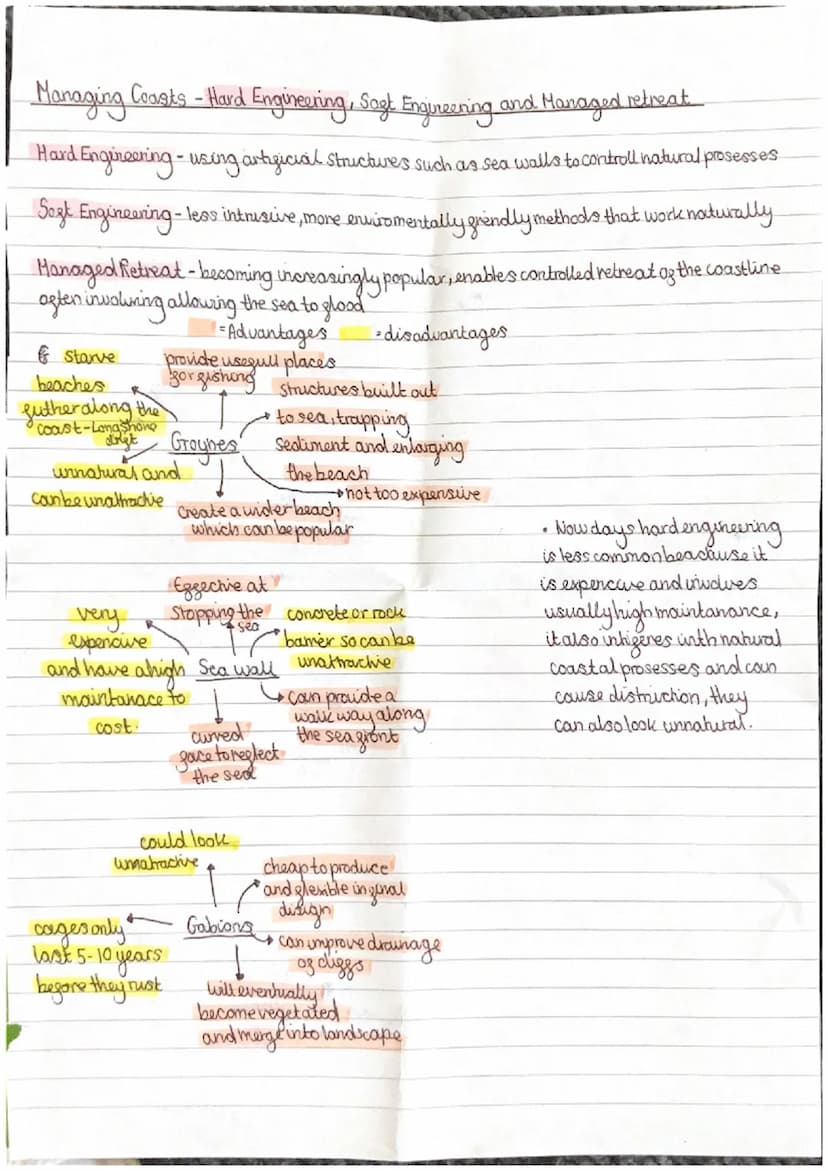 Managing Coasts - Hard Engineering, Soft Engineering and Managed retreat
Hard Engineering - using artificial structures such as sea walls to controll natural prosesses
Soft Engineering - less intrusive, more enviromentally friendly methods that work naturally
Managed Retreat - becoming increasingly popular, enables controlled retreat of the coastline
often involving allowing the sea to flood
= Advantages = disadvantages
starve
beaches
futher along the
coast - Longshore
drift
provide usefull places
for fishing
structures built out
to sea, trapping
sediment and enlarging
the beach
Groynes
unnatural and
can be unattractive
not too expensive
create a wider beach
which can be popular
• Now days hard engineering
is less common beacause it
is expencive and vivolves
usually high maintanance,
it also intiferes with natural
coastal prosesses and can
cause distruction, they
can also look unnatural.
Effective at
stopping the
sea
very
expencive
and have a high
maintanace to
cost.
Sea wall
concrete or rock
barrier so can be
unattractive
can provide a
walk way along
the seafront
curved
face to reflect
the sea
could look
unnatractive
cheap to produce
and flexible in final
disign
Gabions
cages only
last 5-10 years
before they rust
can improve drainage
of cliffs
will eventually
become vegetated
and merge into landscape